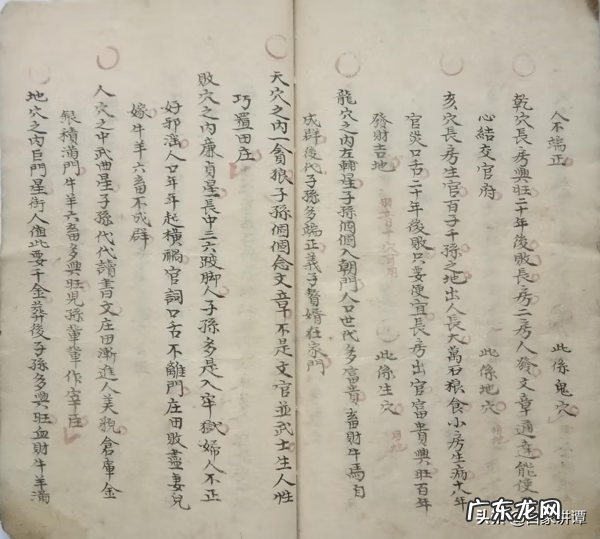 人不端正
此係鬼穴
乾穴長房興旺二十年後敗長房二房人發文章通達能使
心結交官府
此係地穴
亥穴長房生官百子千孫之地出人長大萬石粮食小房生病十八年
官災口舌二十年後敗只要便宜長房出官富貴興旺百年
發財吉地
此係生穴
龍穴之内左輔星子孫個個入朝門人口世代多富貴畜財牛馬自
成群後代子孫多端正義子賢婿在家門
天穴之内一貪狼子孫個個念文章不是文官並武士生人性
巧置田庄
敗穴之内廉貞星長中三六跛脚人子孫多是入牢獄婦人不正
好邪滛人口年年起横禍官詞口舌不離門庄田敗盡妻兒
嫁牛羊六畜不成群
人穴之中武曲星子孫代代讀書文庄田漸進人美貌倉庫金
銀積滿門牛羊六畜多興旺児孫輩輩作宰臣
地穴之内巨門星術人值此要千金葬後子孫多興旺血財牛羊滿
广东龙网
头条
百家讲谭